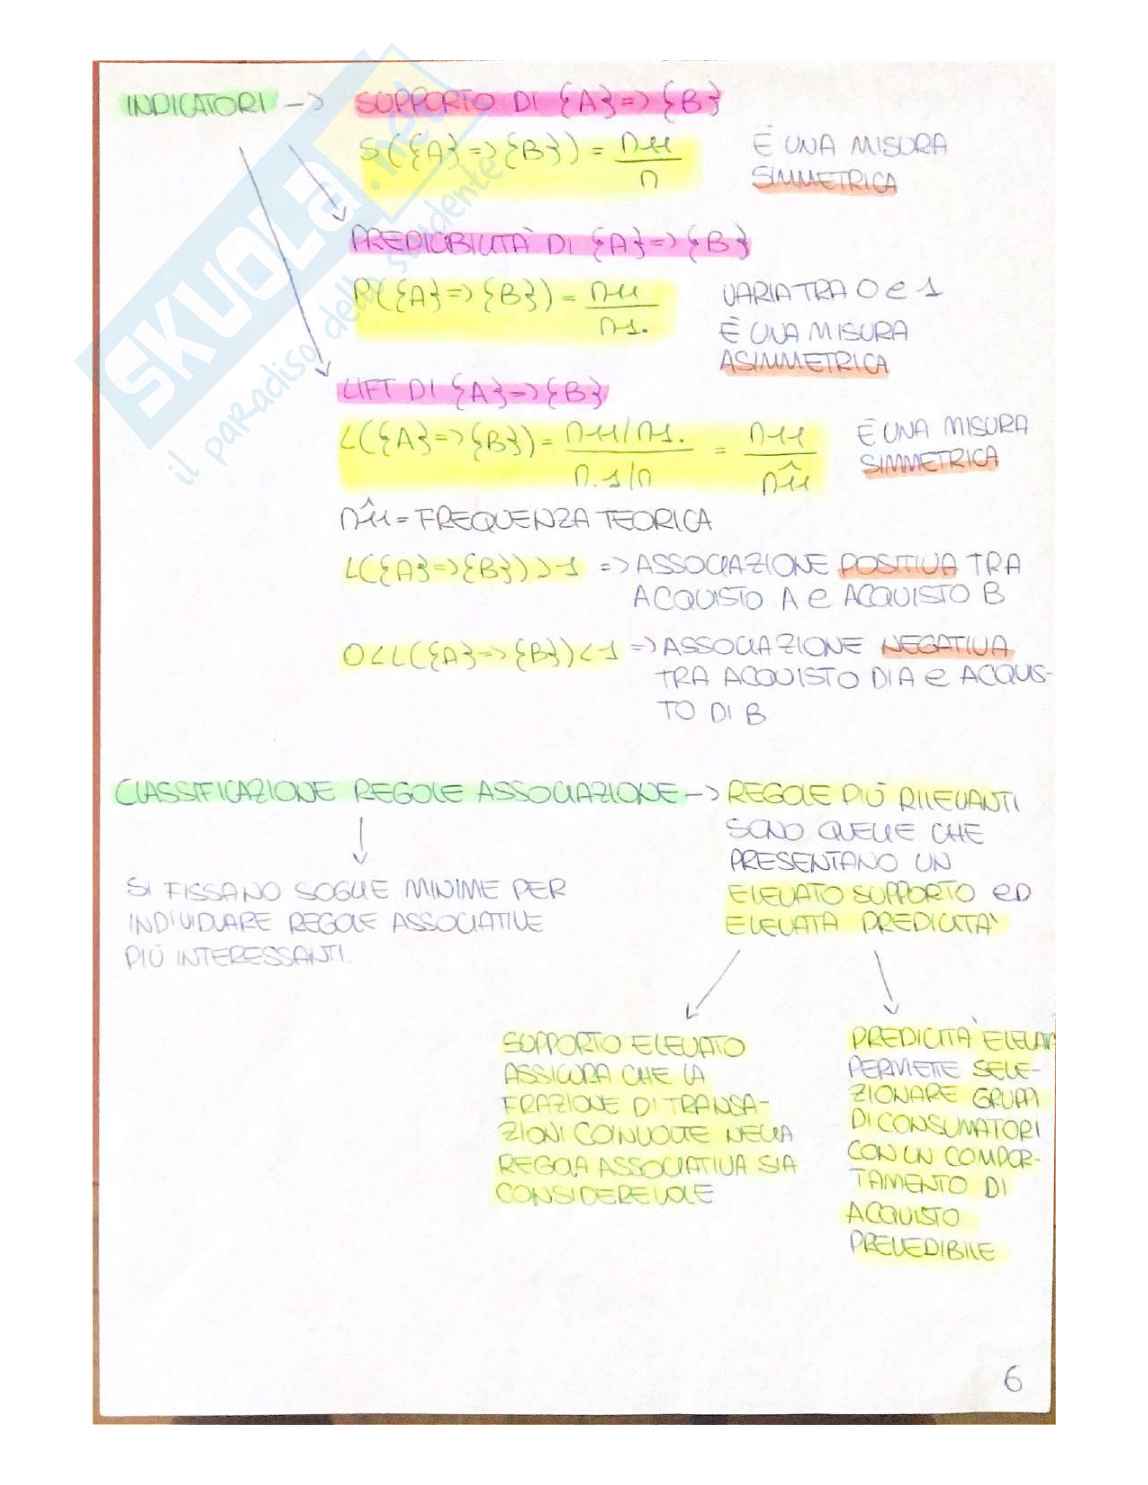 INDICATORI -> SUPPORTO DI {A}=>{B}
S({A}=>{B}) = n11/n
È UNA MISURA
SIMMETRICA
PREDICIBILITÀ DI {A}=>{B}
P({A}=>{B}) = n11/n1.
VARIA TRA 0 e 1
È UNA MISURA
ASIMMETRICA
LIFT DI {A}=>{B}
L({A}=>{B}) = n11/n1. / n.1/n = n11/n̂11
È UNA MISURA
SIMMETRICA
n̂11 = FREQUENZA TEORICA
L({A}=>{B})>1 => ASSOCIAZIONE POSITIVA TRA
ACQUISTO A e ACQUISTO B
0<L({A}=>{B})<1 => ASSOCIAZIONE NEGATIVA
TRA ACQUISTO DI A e ACQUIS-
TO DI B
CLASSIFICAZIONE REGOLE ASSOCIAZIONE -> REGOLE PIÙ RILEVANTI
SONO QUELLE CHE
PRESENTANO UN
ELEVATO SUPPORTO ED
ELEVATA PREDICITÀ
SI FISSANO SOGLIE MINIME PER
INDIVIDUARE REGOLE ASSOCIATIVE
PIÙ INTERESSANTI.
SUPPORTO ELEVATO
ASSICURA CHE LA
FRAZIONE DI TRANSA-
ZIONI COINVOLTE NELLA
REGOLA ASSOCIATIVA SIA
CONSIDEREVOLE
PREDICITÀ ELEVAT
PERMETTE SELE-
ZIONARE GRUPPI
DI CONSUMATORI
CON UN COMPOR-
TAMENTO DI
ACQUISTO
PREVEDIBILE
6
SKUOLA.net
il paradiso dello studente